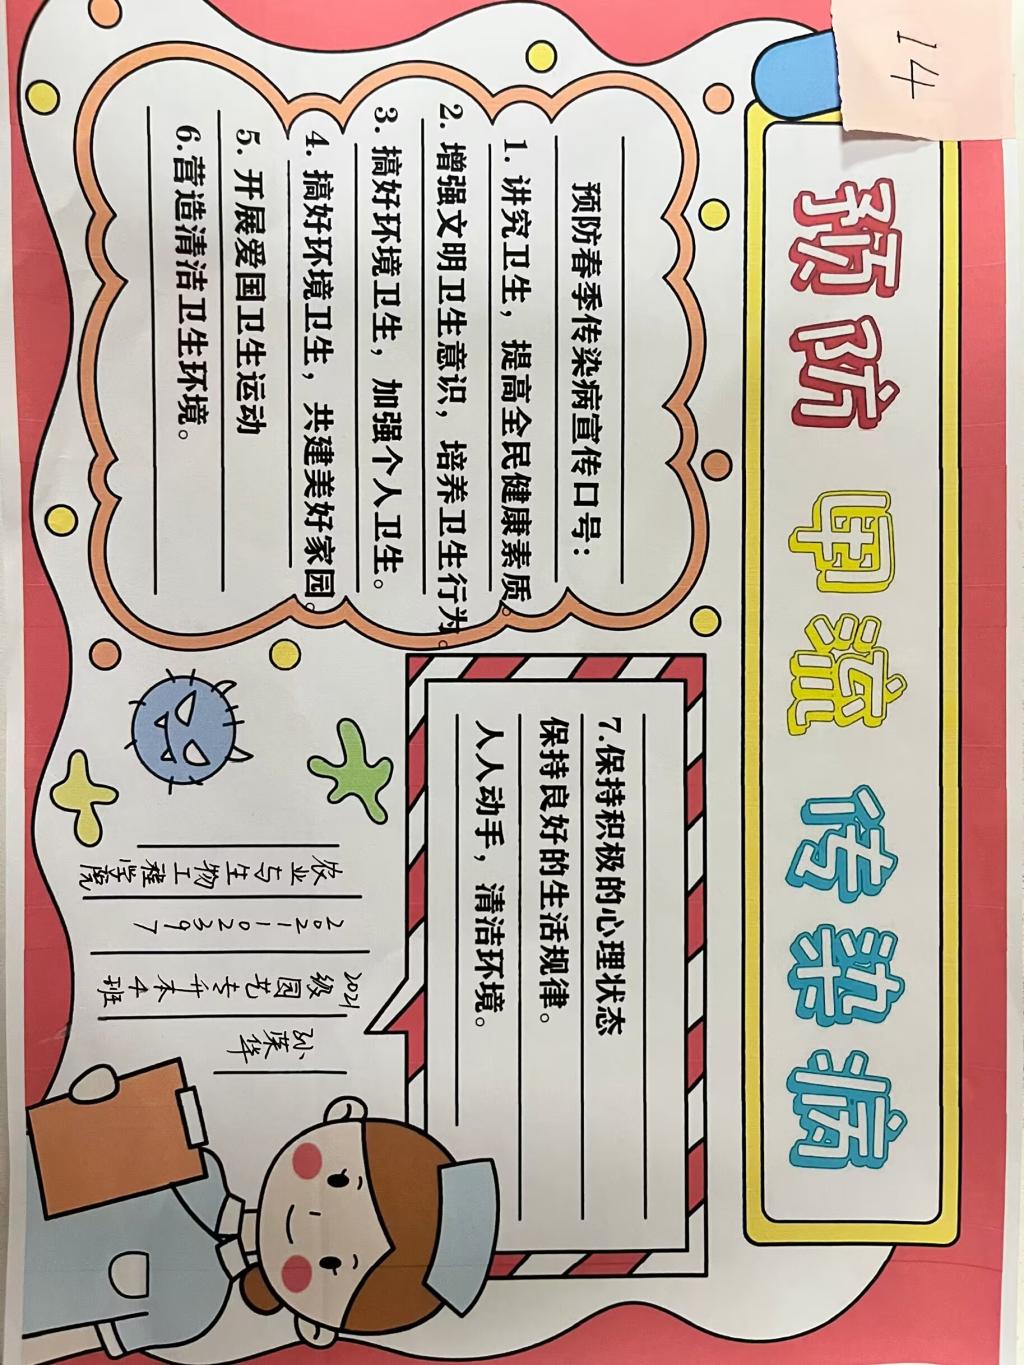 14
预防 甲流 传染病
预防春季传染病宣传口号：
1. 讲究卫生，提高全民健康素质。
2. 增强文明卫生意识，培养卫生行为。
3. 搞好环境卫生，加强个人卫生。
4. 搞好环境卫生，共建美好家园。
5. 开展爱国卫生运动
6.营造清洁卫生环境。
7.保持积极的心理状态
保持良好的生活规律。
人人动手，清洁环境。
农业与生物工程学院
2021102397
2021级园艺专升本4班
孙荣华